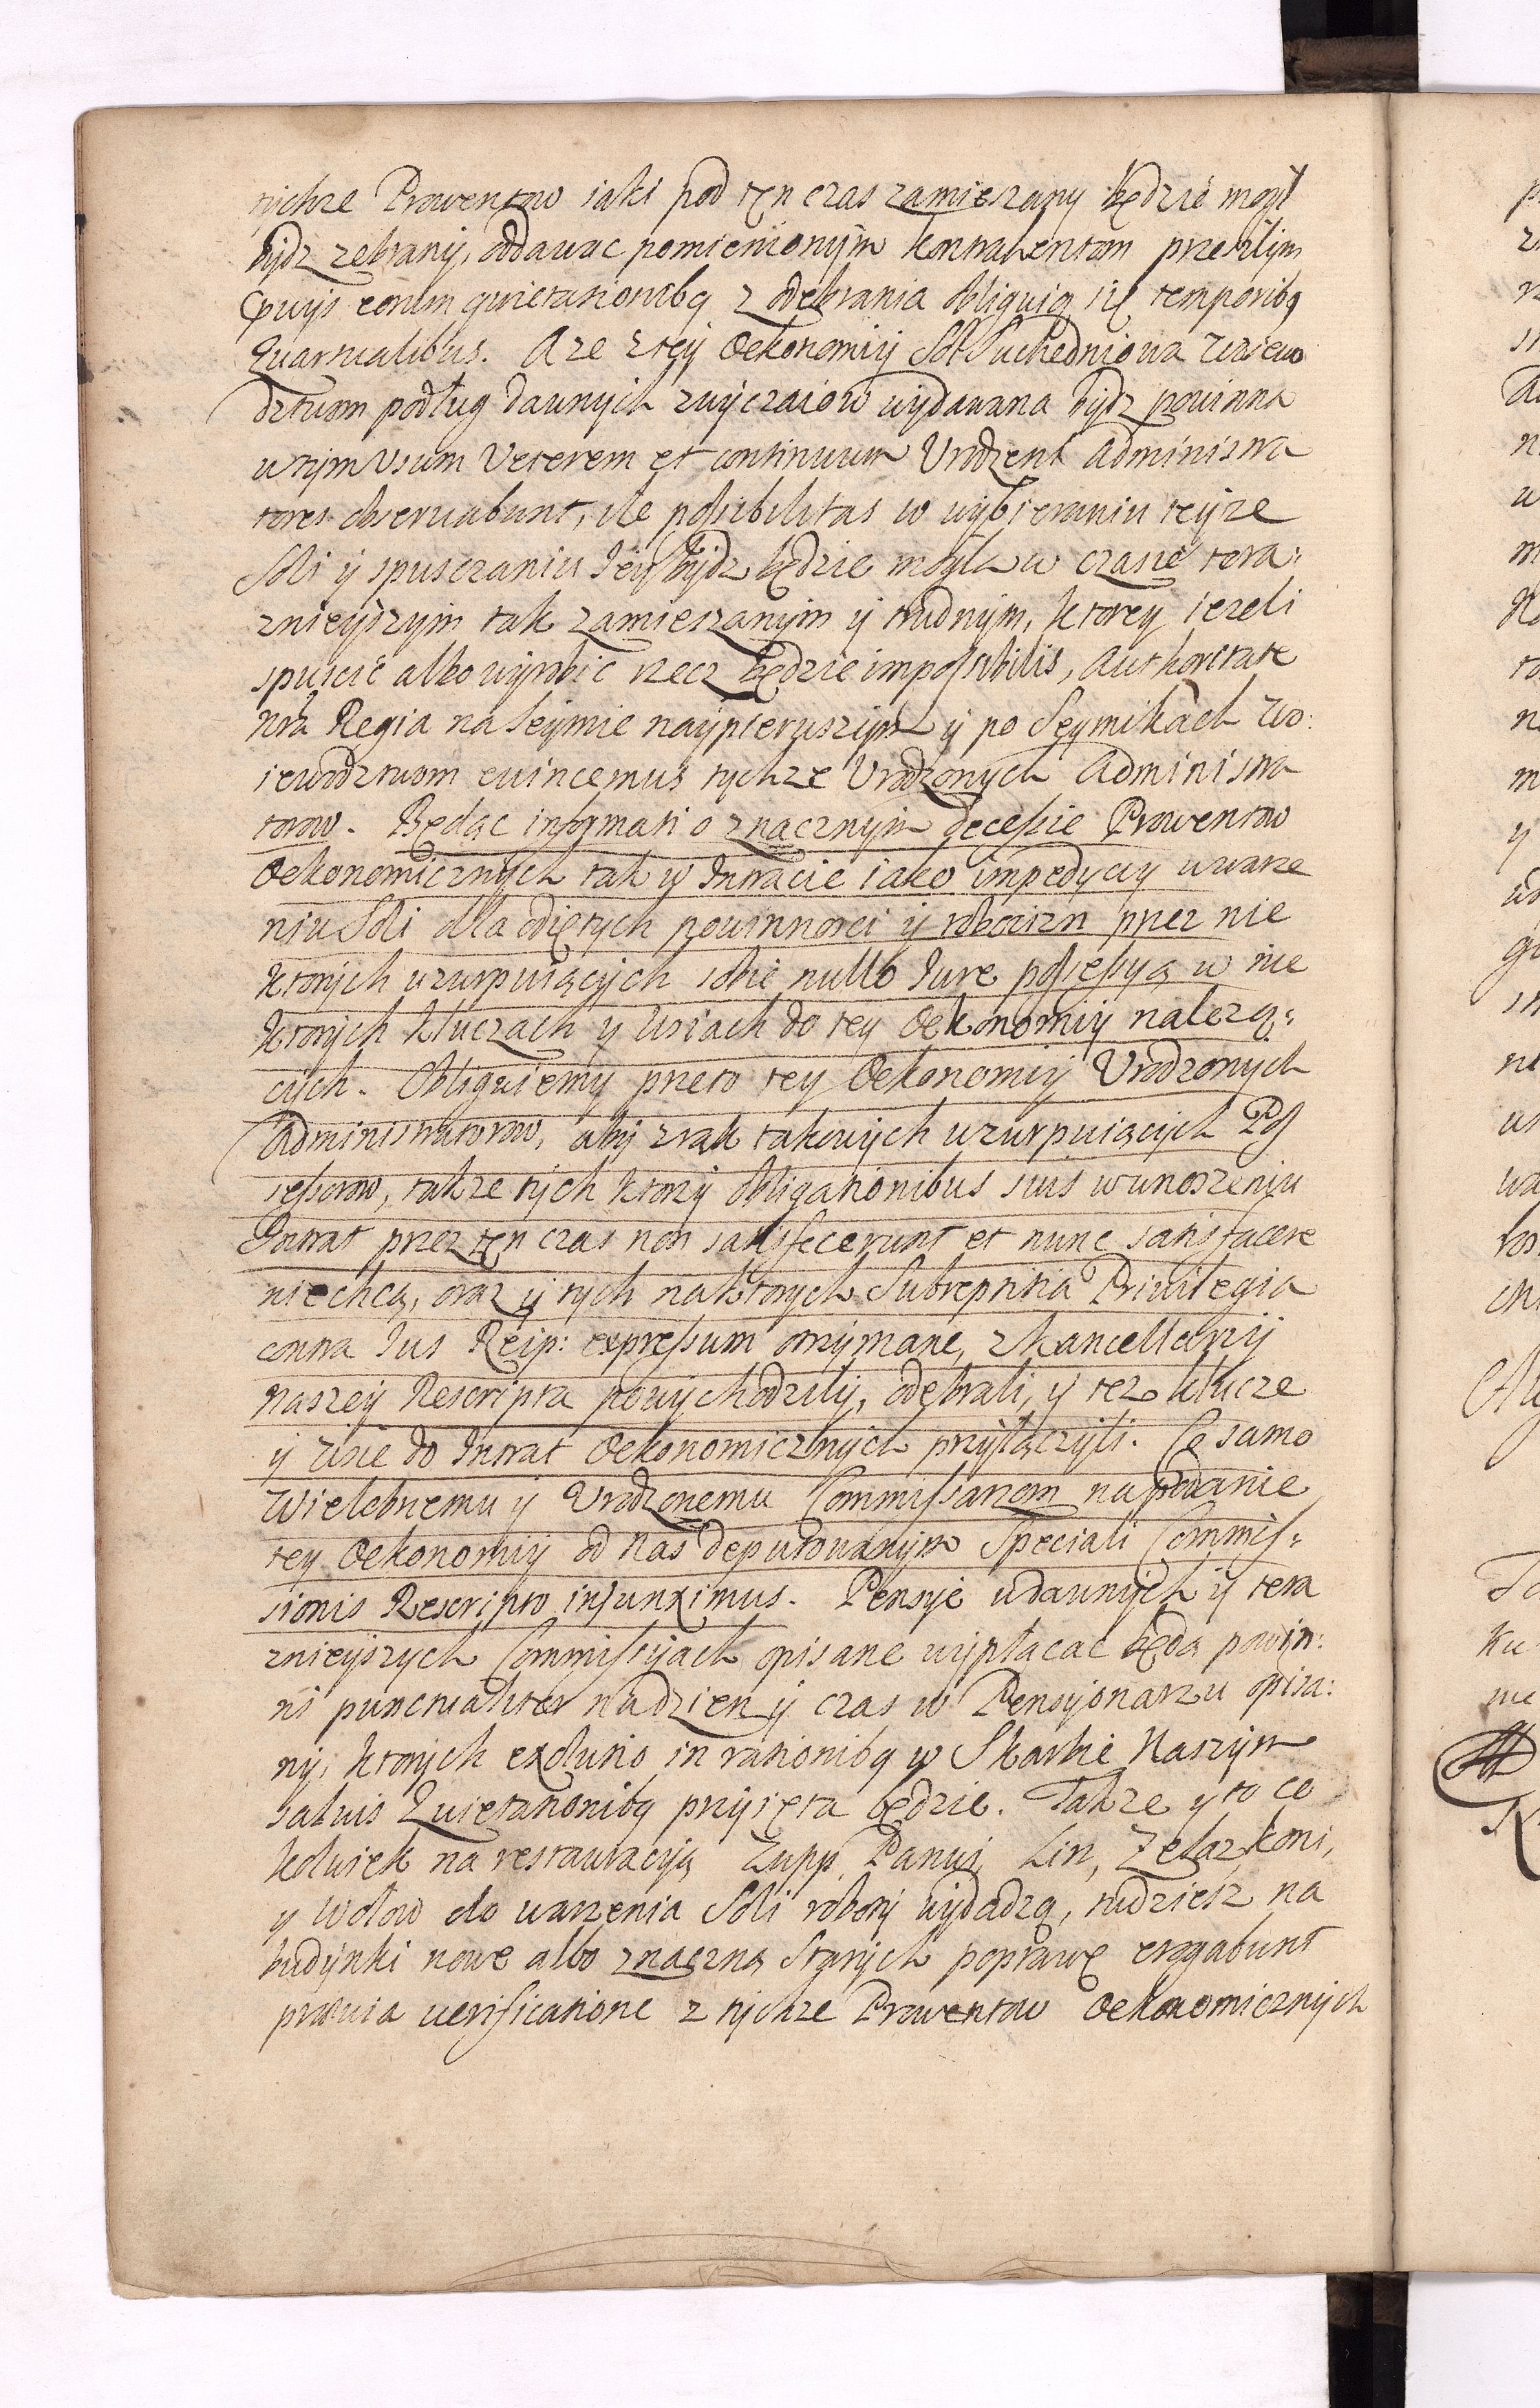 tychze Prowentow iaki pod ten czas zamieszany będzie mogł
bydz zebrany, oddawac pomienionym kontrahentom przeszłym
quietationibq z odebrania obliguią się temporibq
Quartualibus. A ze z tey Oekonomiy Sol Suchedniowa Woiewo
dztwom podług dawnych zwyczaiow wydawana bydz powinna
w tym Usum Veterem et continuum Urodzeni Administra
tores observabunt, ile possibilitas w wybieraniu teyze
Soli y spusczaniu Iey bydz będzie mogła w czasie tera:
znieyszym tak zamieszanym y trudnym, ktorey iezeli
spuscic albo wyrobic rzecz będzie impossibilis, Authoritate
nra Regia na Seymie naypierwszym y po Seymikach Wo:
iewodztwom evincemus tychze Urodzonych Administra
torow. Będąc informati o znacznym decessie Prowentow
Oekonomicznych tak w Intracie iako impedycyy w warze
niu Soli dla odiętych powinnosci y robocizn przez nie
ktorych uzurpuiących sobie nullo Iure possessyą w nie
ktorych kluczach y Wsiach do tey Oekonomiy nalezą:
cych. Obliguiemy przeto tey Oekonomiy Urodzonych
Administratorow, aby z rąk takowych uzurpuiących Pos
sessorow, takze tych ktorzy obligationibus suis w unoszeniu
Intrat przez ten czas non satisfecerunt et nunc satisfacere
niechcą, oraz y tych na ktorych Subreptitia Privilegia
contra Ius Reip: expressum otrzymane, z Kancellaryj
Naszey Rescripta powychodziły, odebrali, y tez klucze
y Wsie do Intrat Oekonomicznych przyłączyli. Co samo
Wielebnemu y Urodzonemu Commissarzom na podanie
tey Oekonomiy od Nas deputowanym Speciali Commis:
sionis Rescripto injunximus. Pensye w dawnych y tera
znieyszych Commissyach opisane wypłacac będą powin:
ni punctualiter na dzien y czas w Pensyonarzu opisa:
ny, ktorych exolutio in rationibq w Skarbie Naszym
salvis Quietationibq przyięta będzie. Takze y to co
kolwiek na restauracyą Zupp, Panwi, Lin, Zelaz, koni,
y Wołow do warzenia Soli robory wydadzą, tudziesz na
budynki nowe albo znaczną Starych poprawę erogabunt
praevia verificatione z tychze Prowentow Oekonomicznych